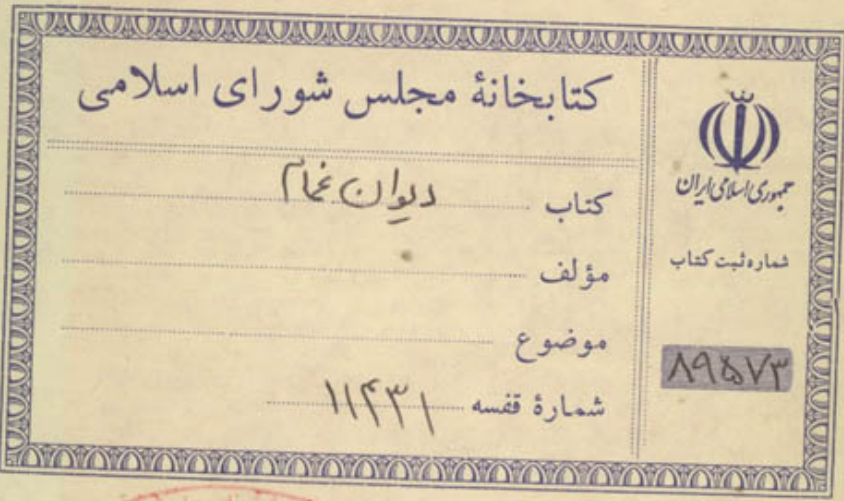 کتابخانهٔ مجلس شورای اسلامی
کتاب دیوان غمام
مؤلف
موضوع
شمارهٔ قفسه ۱۱۴۳۱
جمهوری اسلامی ایران
شماره ثبت کتاب
۸۹۵۷۳